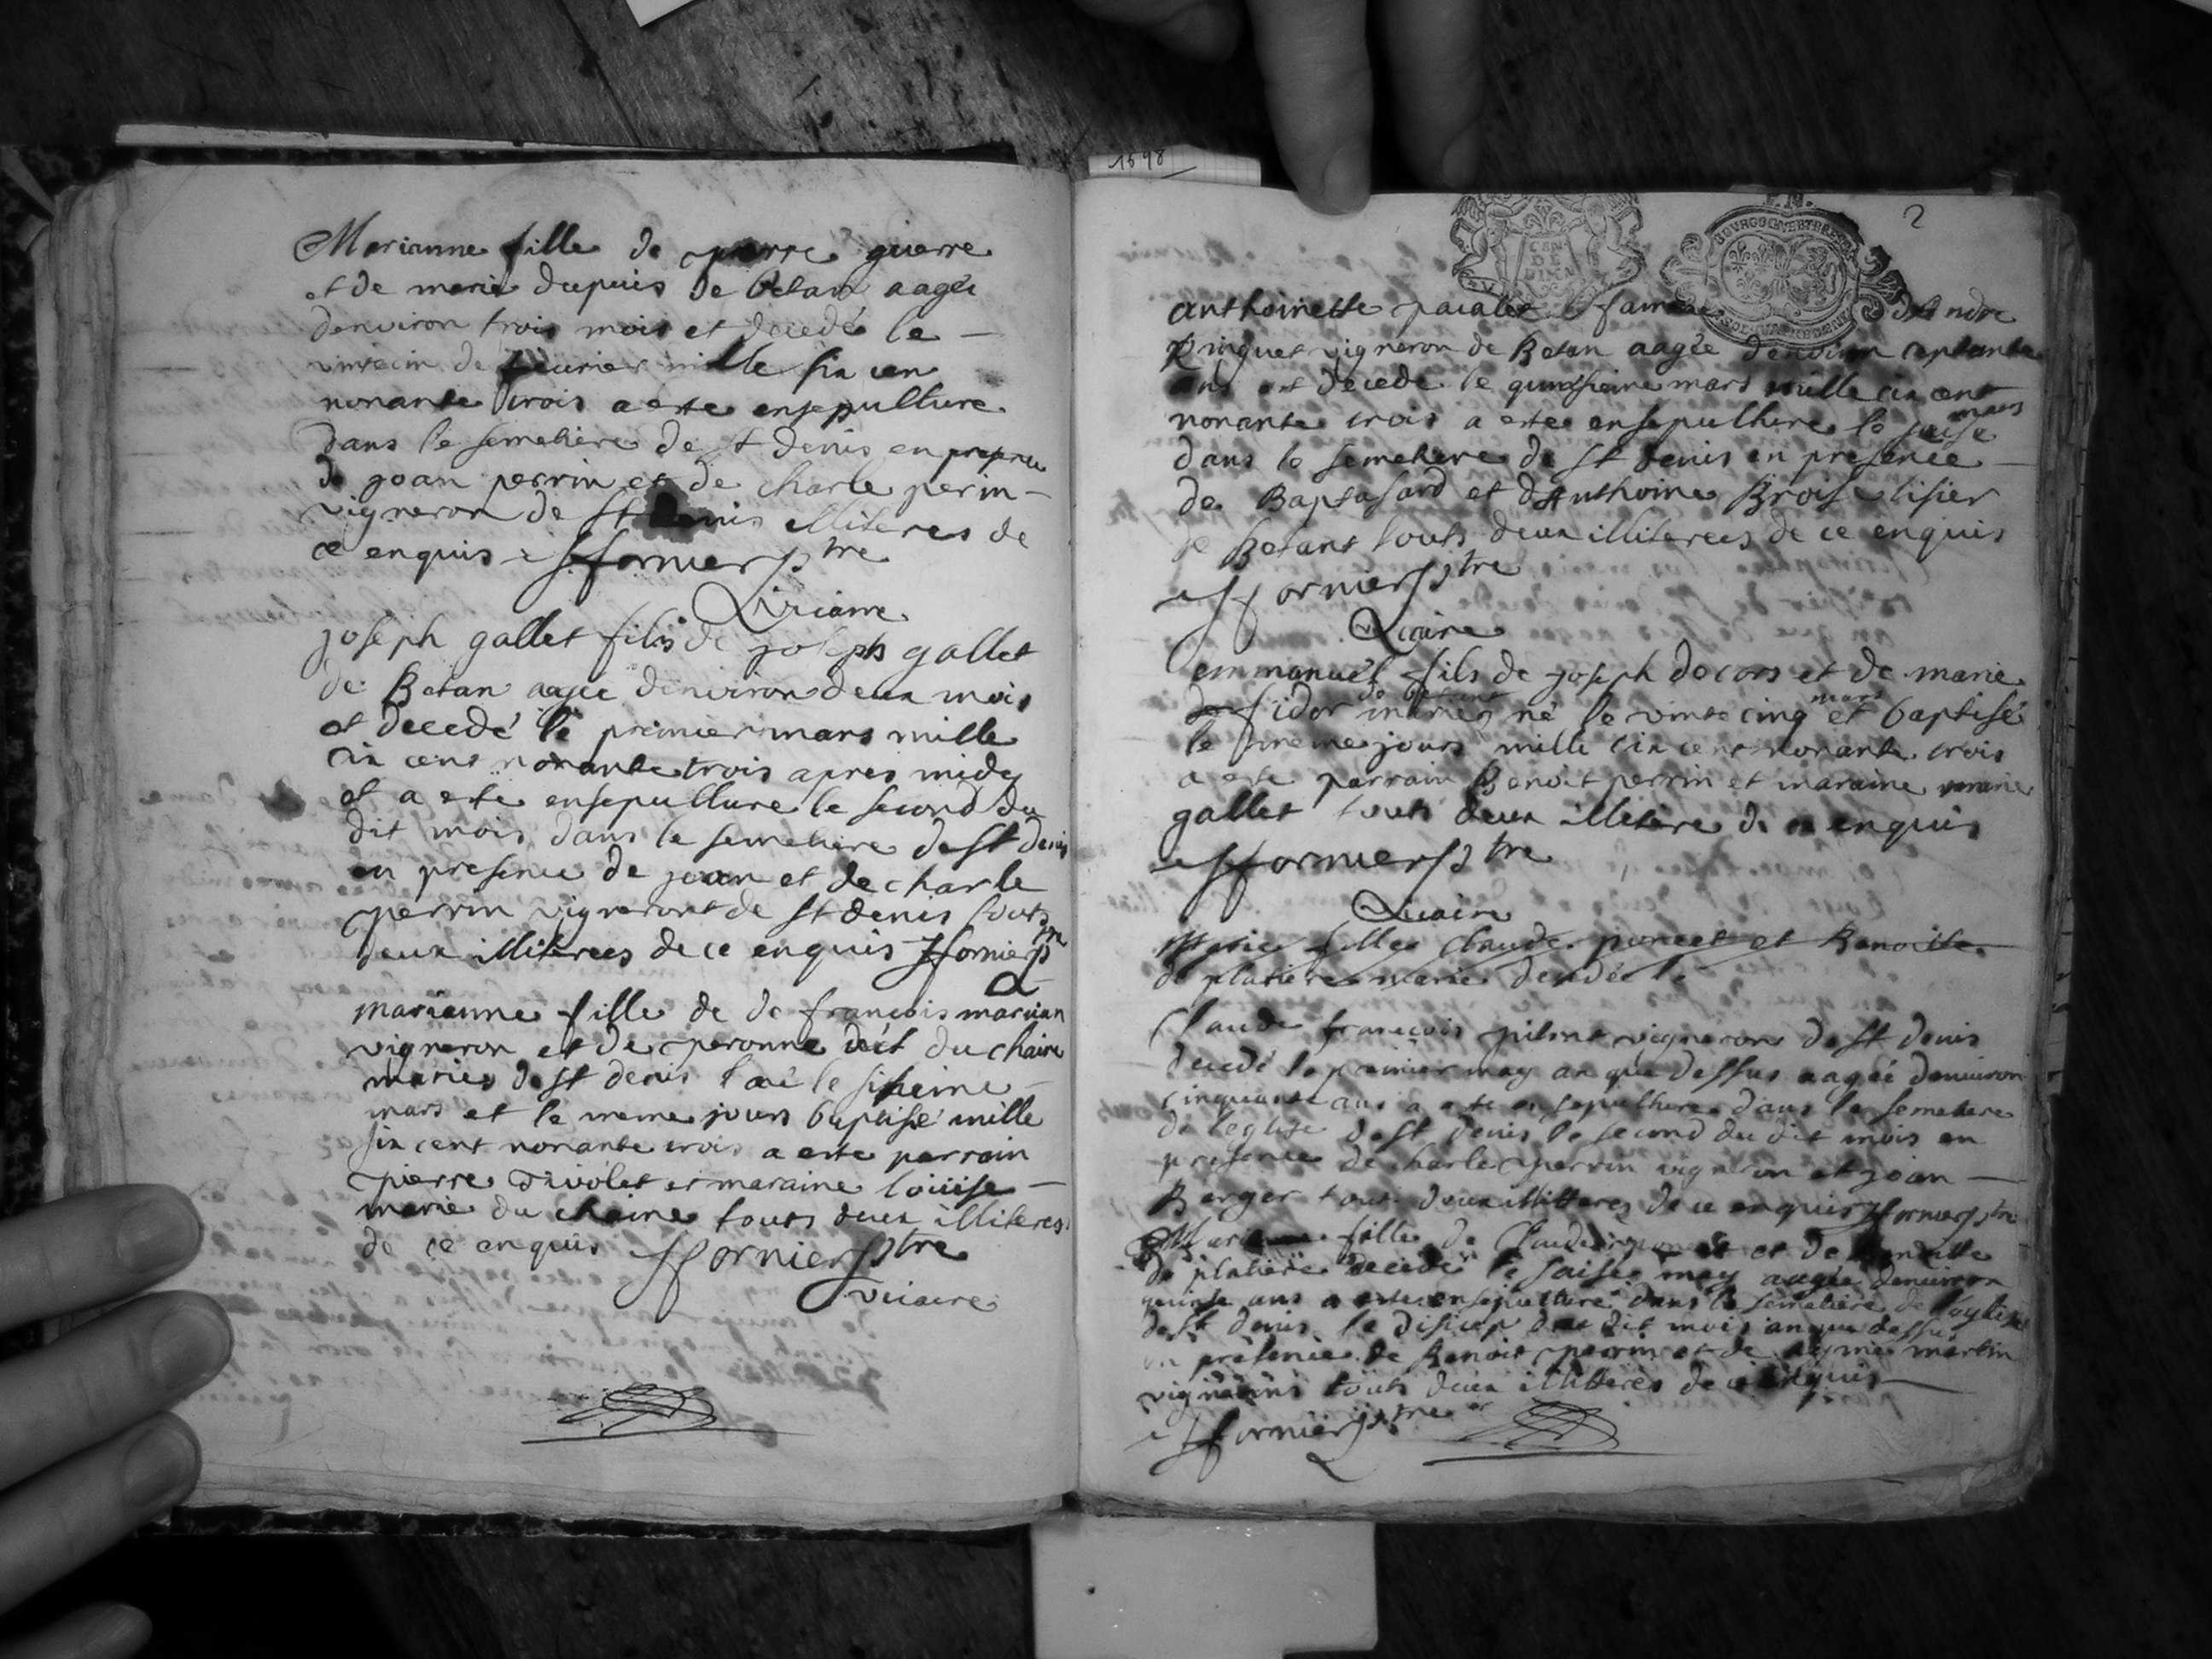 Marianne fille de pierre guerre
et de marie dupuis de betan aagée
denviron trois mois et decedé le
vintecin de feurier mille six cen
nonante trois a este ensepulture
dans le semetiere de st denis en
de joan perrin et de charle perin
vigneron de st denis illiteres de
ce enquis fformier ptre
Viciaire
joseph gallet fils de joseph gallet
de Betan aagée denviron deux mois
et decedé le premier mars mille
six cent nonante trois apres midy
et a este ensepulture le second du
dit mois dans le semetiere de st denis
en presence de joan et de charle
perrin vigneront de st denis touts
deux illiterees de ce enquis fformier ptre
marianne fille de de francois
vigneron et de peronne du chaine
maries de st denis né le
mars et le meme jours baptisé mille
six cent nonante trois a este parrain
pierre et maraine louise
marie du chaine touts deux illiteres
de ce enquis fformier ptre
viciaire
1698
2
BOURGOGNE
CEN
DE
anthoinette famme dAndre
pinguet vigneron de Betan aagée denviron septante
ans et decede le quinsieme mars mille six cent
mars
nonante trois a estee ensepulture le saise
dans le semetiere de st denis en presence
de et danthoine Brois tisier
de Betant touts deux illiterees de ce enquis
fformier ptre
Viciaire
emmanuel fils de joseph decors et de marie
de betant mars
fidor maries né le vintecinq et baptisé
le meme jours mille six cent nonante trois
a este parrain Benoit perrin et maraine marie
gallet touts deux illitere de ce enquis
fformier ptre
Viciaire
Marie fille claude poncet et Benoitte
de platiere marie decedée le
Claude francois vigneron de st denis
decedé le premier may an que dessus aagée denviron
cinquante ans a este ensepulture dans le semetiere
de leglise de st denis le second du dit mois en
presence de charle perrin vigneron et joan
Berger touts deux illitteres de ce enquis fformier ptre
fille de Claude poncet et de
de platiere decedé le saise may aagée denviron
quinse ans a este ensepulture dans le semetiere de leglise
de st denis le du dit mois an que dessus
en presence de Benoit perrin et de martin
vignerons touts deux illitteres de ce enquis
fformier ptre